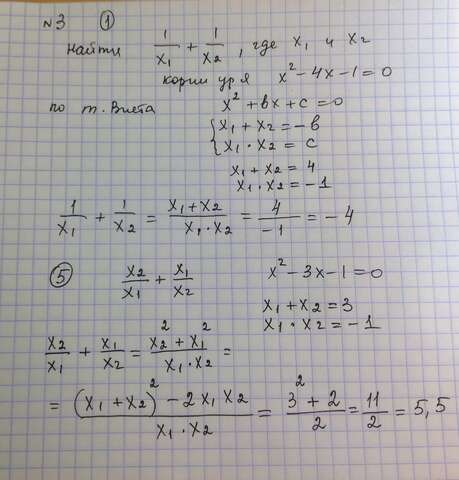 №3 ①
найти 1/x₁ + 1/x₂, где x₁ и x₂
корни ур-я x² - 4x - 1 = 0
по т. Виета x² + bx + c = 0
{ x₁ + x₂ = -b
x₁ · x₂ = c
x₁ + x₂ = 4
x₁ · x₂ = -1
1/x₁ + 1/x₂ = (x₁ + x₂)/(x₁ · x₂) = 4/-1 = -4
⑤ x₂/x₁ + x₁/x₂ x² - 3x - 1 = 0
x₁ + x₂ = 3
x₁ · x₂ = -1
x₂/x₁ + x₁/x₂ = (x₂² + x₁²)/(x₁ · x₂) =
= ((x₁ + x₂)² - 2x₁x₂)/(x₁ · x₂) = (3² + 2)/2 = 11/2 = 5,5